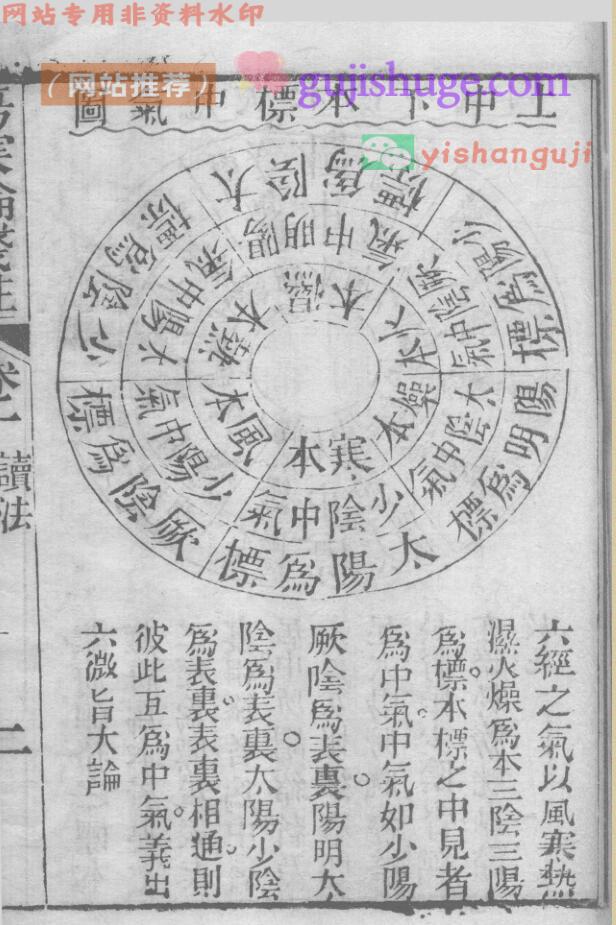 网站专用非资料水印
（网站推荐）
gujishuge.com
yishanguji
上中下本標中氣圖
太陰爲標
中明陽氣
濕本
少陽爲標
厥陰中氣
火本
陽明爲標
太陰中氣
燥本
太陽爲標
少陰中氣
寒本
厥陰爲標
少陽中氣
風木
少陰爲標
太陽中氣
熱本
六經之氣以風寒熱
濕火燥爲本三陰三陽
爲標本標之中見者
爲中氣中氣如少陽
厥陰爲表裏陽明太
陰爲表裏太陽少陰
爲表裏表裏相通則
彼此互爲中氣義出
六微旨大論
卷一
讀法
二